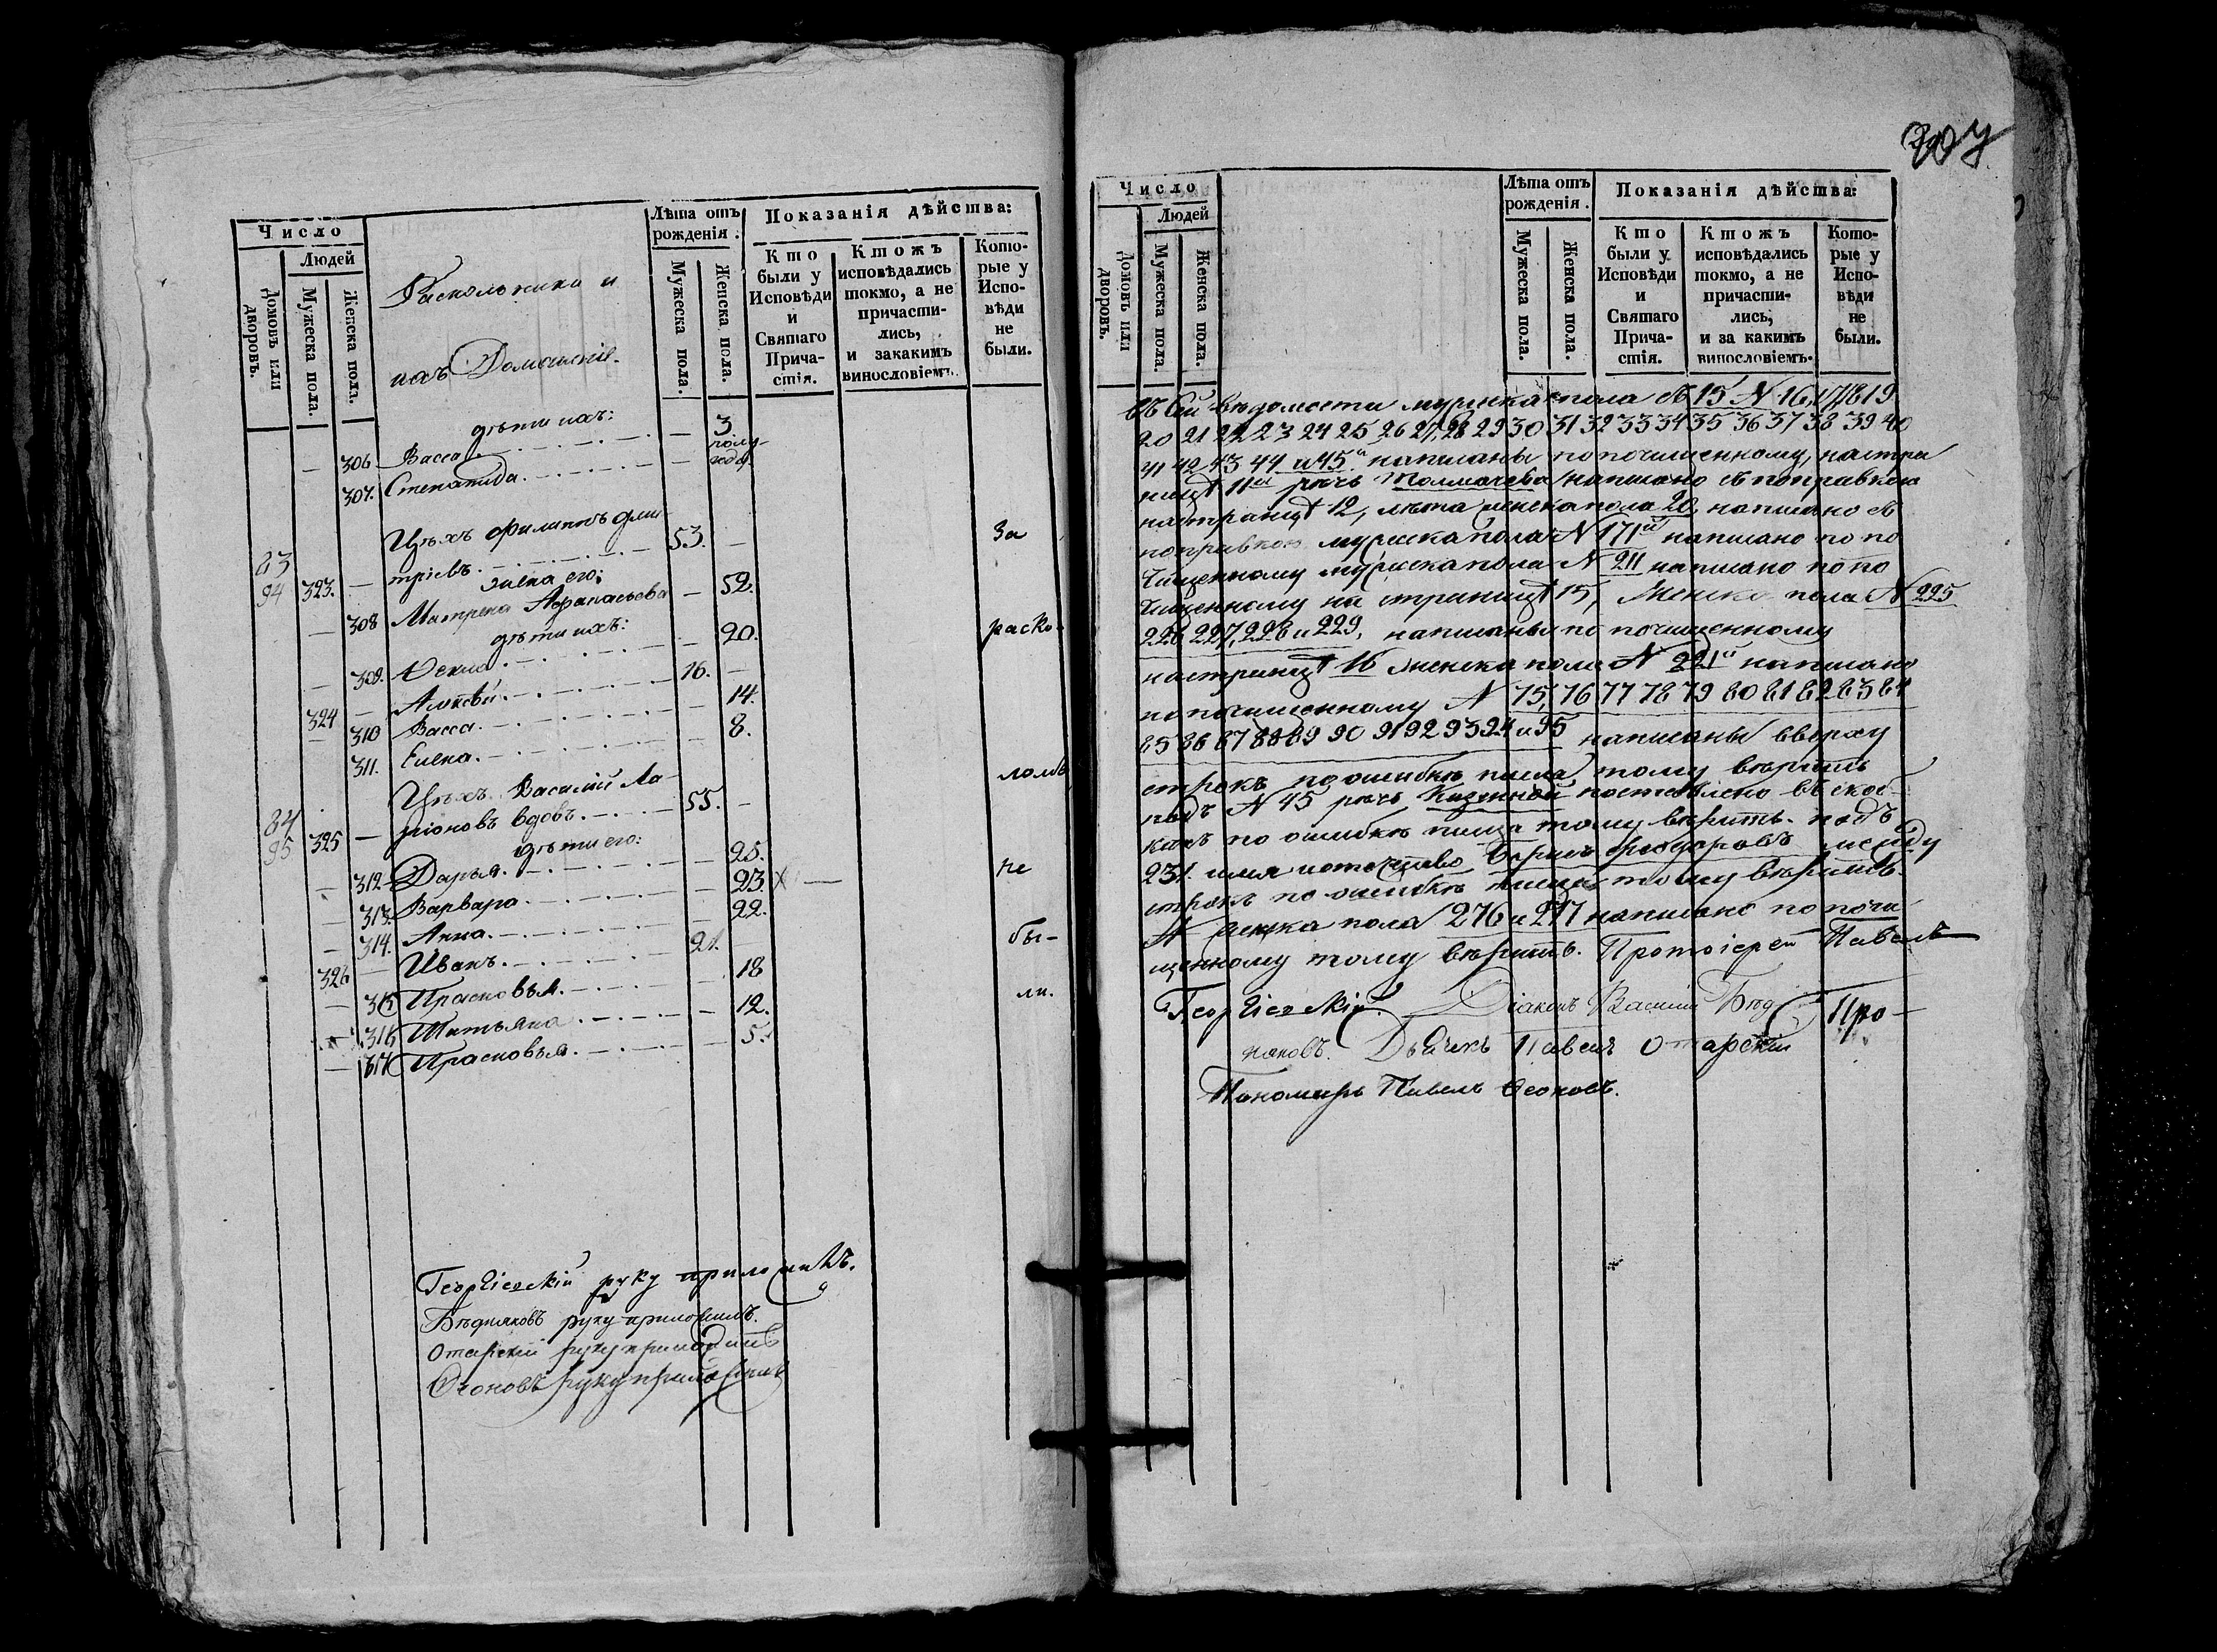 Число
Людей
Домовъ или дворовъ.
Мужеска пола.
Женска пола.
Раскольники и
ихъ Домашніе.
Лѣта отъ рожденія.
Мужеска пола.
Женска пола.
Показанія дѣйства:
Кто были у Исповѣди и Святаго Причастія.
Ктожъ исповѣдались токмо, а не причастились, и закакимъ винословіемъ.
Которые у Исповѣди не были.
дѣти ихъ:
— 306 Васса — 3.
307. Степанида. — полугода.
Цѣхъ Филиппъ Дми-
83 94 323. — тріевъ. 53. —
жена его:
— 308 Матрена Афанасьева — 52.
дѣти ихъ:
— 309. Ѳекла. — 20.
324 — Алексѣй. 16. —
— 310 Васса. — 14.
311. Елена. — 8.
Цѣхъ Василій Ла-
84 95 325 — ріоновъ вдовъ. 55. —
дѣти его:
— 312 Дарья. — 25.
— 313. Варвара. — 23. X —
— 314. Анна. — 22.
326 — Иванъ. 21.
— 315 Прасковья. — 18
— 316 Татьяна. — 12.
— 317 Прасковья. — 5.
За
раско-
ломъ
не
бы-
ли.
Георгіевскій руку приложилъ.
Бѣдняковъ руку приложилъ.
Отарскій руку приложилъ
Ѳеоновъ руку приложилъ
Число
Людей
Домовъ или дворовъ.
Мужеска пола.
Женска пола.
Лѣта отъ рожденія.
Мужеска пола.
Женска пола.
Показанія дѣйства:
Кто были у Исповѣди и Святаго Причастія.
Ктожъ исповѣдались токмо, а не причастились, и за какимъ винословіемъ.
Которые у Исповѣди не были.
въ сей вѣдомости мужеска пола съ 15 N 16, 17 18 19
20 21 22 23 24 25 26 27, 28 29 30 31 32 33 34 35 36 37 38 39 40
41 42 43 44 и 45.й написаны по почищенному, на стра
ницѣ 11й рѣчь Толмачева написано съ поправкою
на страницѣ 12, лѣта женска пола 20, написано съ
поправкою мужеска пола N 171й написано по по
чищенному мужеска пола N 211 написано по по
чищенному на страницѣ 15, Женска пола N 225
226 227, 228 и 229, написаны по почищенному
на страницѣ 16 женска пола N 221й написано
по почищенному N 75, 76 77 78 79 80 81 82 83 84
85 86 87 88 89 90 91 92 93 94 и 95 написаны вверху
строкъ по ошибкѣ писца, тому вѣрить
подъ N 45 рѣчь Казенной поставлено въ скоб-
кахъ по ошибкѣ писца тому вѣрить. подъ
231. имя и отечество Борисъ Федоровъ между
строкъ по ошибкѣ писца тому вѣрить.
N женска пола 276 и 277 написано по почи
щенному тому вѣрить. Протоіерей Павелъ
Георгіевскій. Діаконъ Василій Бѣд-
няковъ. Дьячекъ Павелъ Отарскій Про-
Пономарь Павелъ Ѳеоновъ.